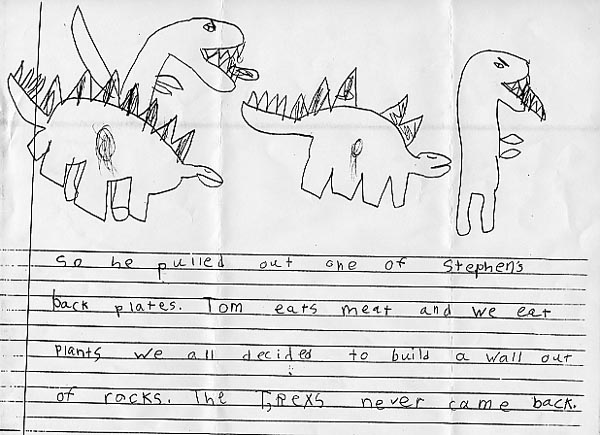 So he pulled out one of Stephen's
back plates. Tom eats meat and we eat
plants we all decided to build a wall out
of rocks. The T,Rexs never came back.